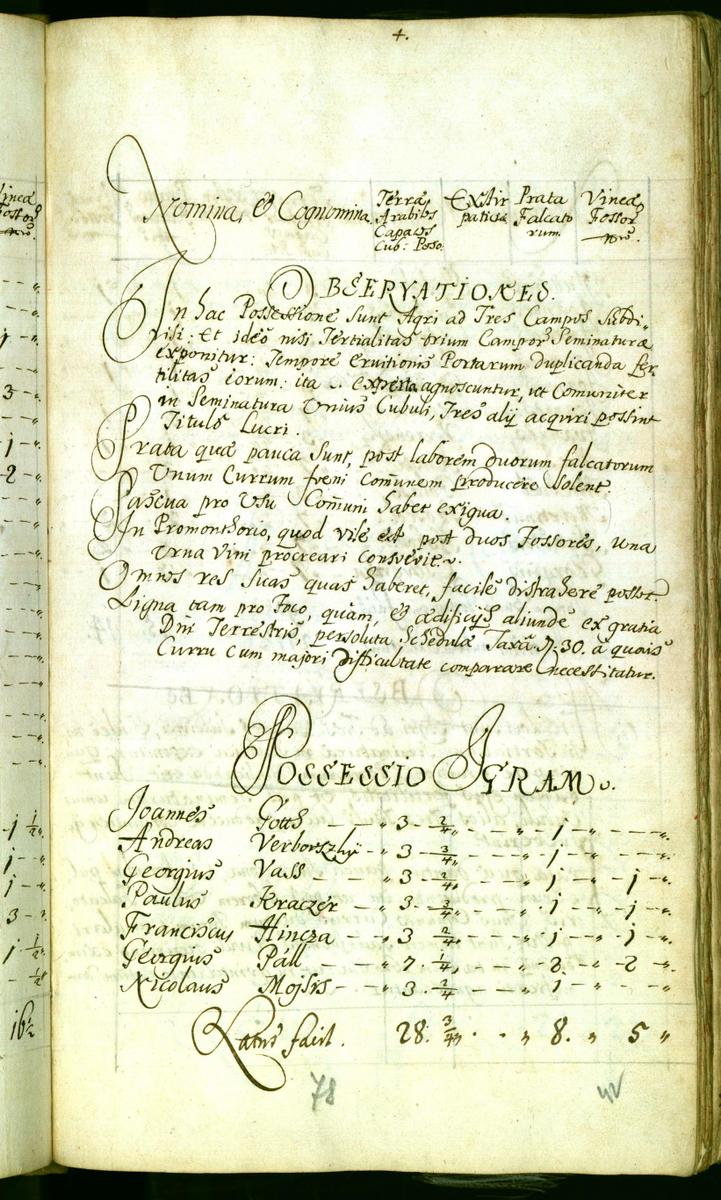 4.
Nomina, & Cognomina Terræ Arabiles Capaces Cub: Poso. Extirpatitiæ Prata Falcatorum. Vineæ Fossorum.
OBSERVATIONES.
In hac Possessione sunt Agri ad Tres Campos Subdi-
visi: Et ideò nisi Tertialitas trium Camporum Seminaturæ
exponitur: Tempore Eruitionis Portarum duplicanda fer-
tilitas eorum: ita agnoscuntur, ut Comuniter
in Seminatura Unius Cubuli, Tres alij acquiri possint
Titulô Lucri.
Prata quæ pauca sunt, post laborem duorum falcatorum
Unum Currum fœni Comunem producere solent.
Pascua pro Usu Comuni habet exigua.
In Promonthorio, quod vile est, post duos Fossores, una
Urna Vini procreari consvevit.
Omnes res suas quas haberet, facile distrahere posset.
Ligna tam pro Foco, quàm, & ædificijs aliunde ex gratia
Dni Terrestris, persoluta Schedulæ Taxa 30. à quovis
Curru cum majori difficultate comparare necessitatur.
POSSESSIO IGRAM.
Joannes Gotth — " 3 2/4 " — " 1 — " — — ".
Andreas Verborszky — " 3 3/4 " — " 1 — " — — ".
Georgius Vass — " 3 2/4 " — " 1 — " — 1 — ".
Paulus Kraczer — " 3 3/4 " — " 1 — " — 1 — ".
Franciscus Hincza — " 3 2/4 " — " 1 — " — 1 — ".
Georgius Pall — " 7. 1/4 " — " 2 — " — 2 — ".
Nicolaus Mojsis — " 3. 2/4 " — " 1 — " — — ".
Latus facit. 28. 3/4 " . . " 8. " 5 "
78